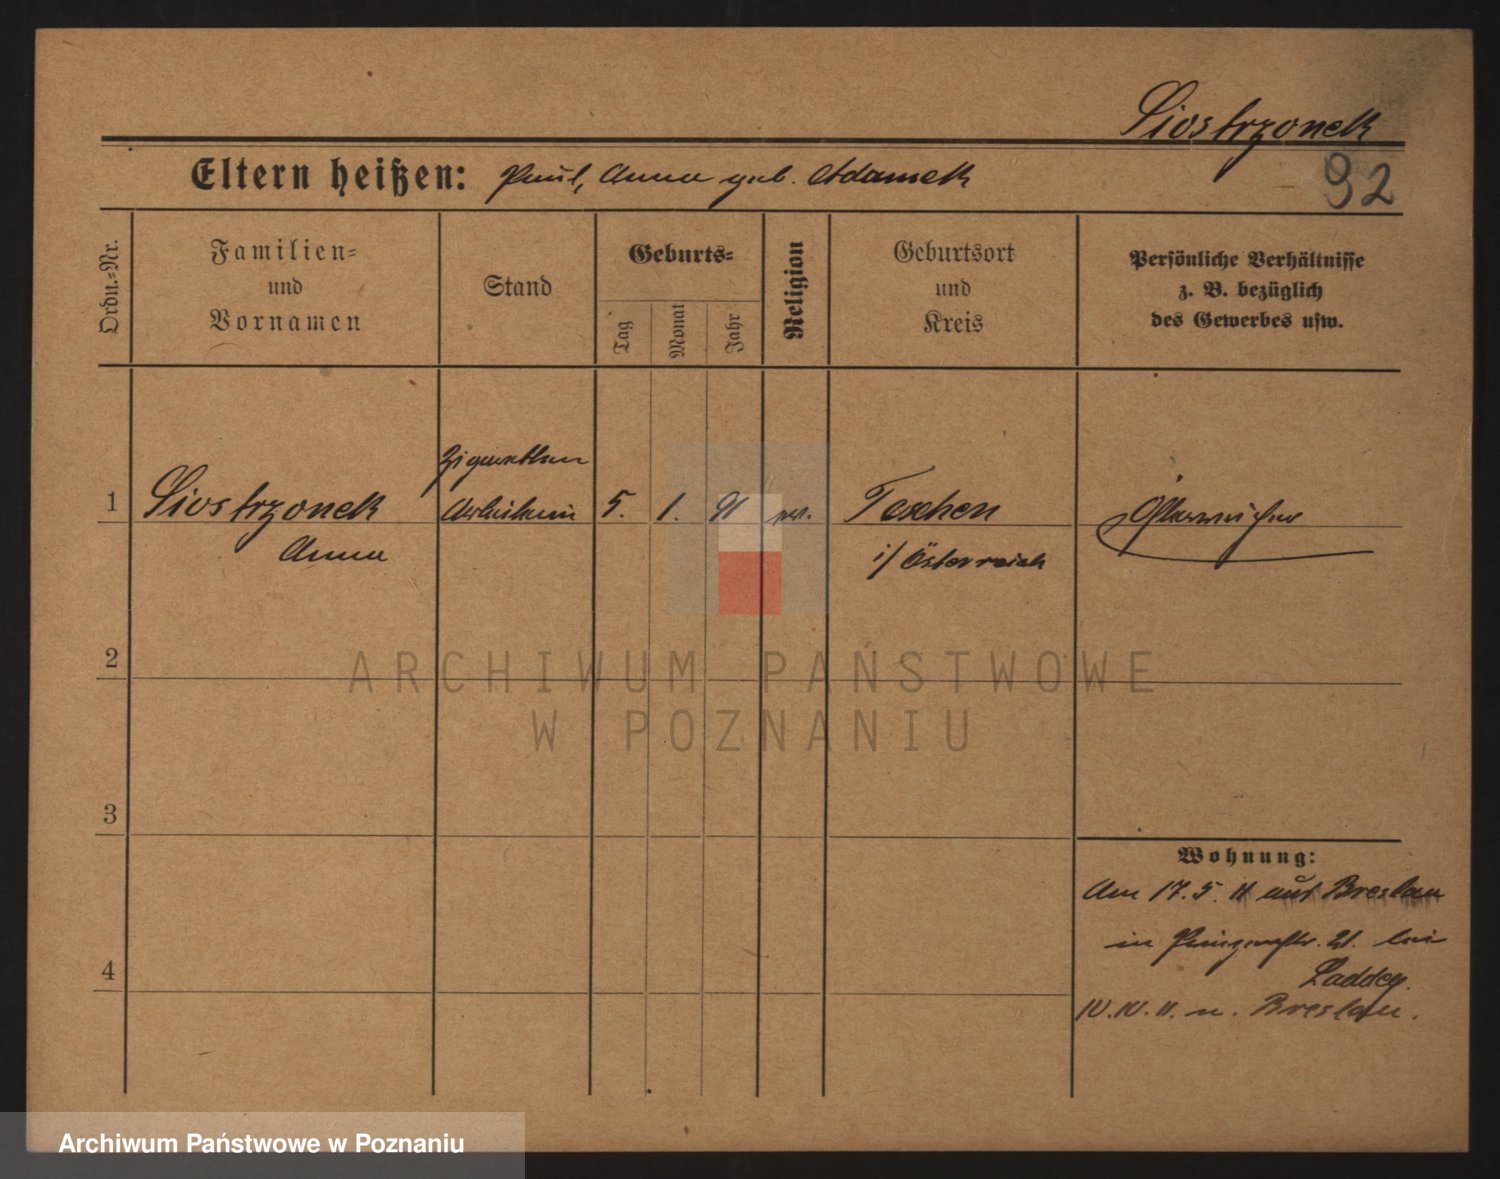 Siostrzonek
Eltern heißen: Paul, Anna geb. Adamek
92
Ordn.-Nr.
Familien-
und
Vornamen
Stand
Geburts-
Tag
Monat
Jahr
Religion
Geburtsort
und
Kreis
Persönliche Verhältnisse
z. B. bezüglich
des Gewerbes usw.
1
Siostrzonek
Anna
Zigaretten
Arbeiterin
5. 1. 91
ev.
Teschen
i/ Österreich
2
3
4
Wohnung:
Am 17. 5. 11 aus Breslau
in 21. bei
Laddey.
10. 10. 11. n. Breslau.
ARCHIWUM PAŃSTWOWE
W POZNANIU
Archiwum Państwowe w Poznaniu